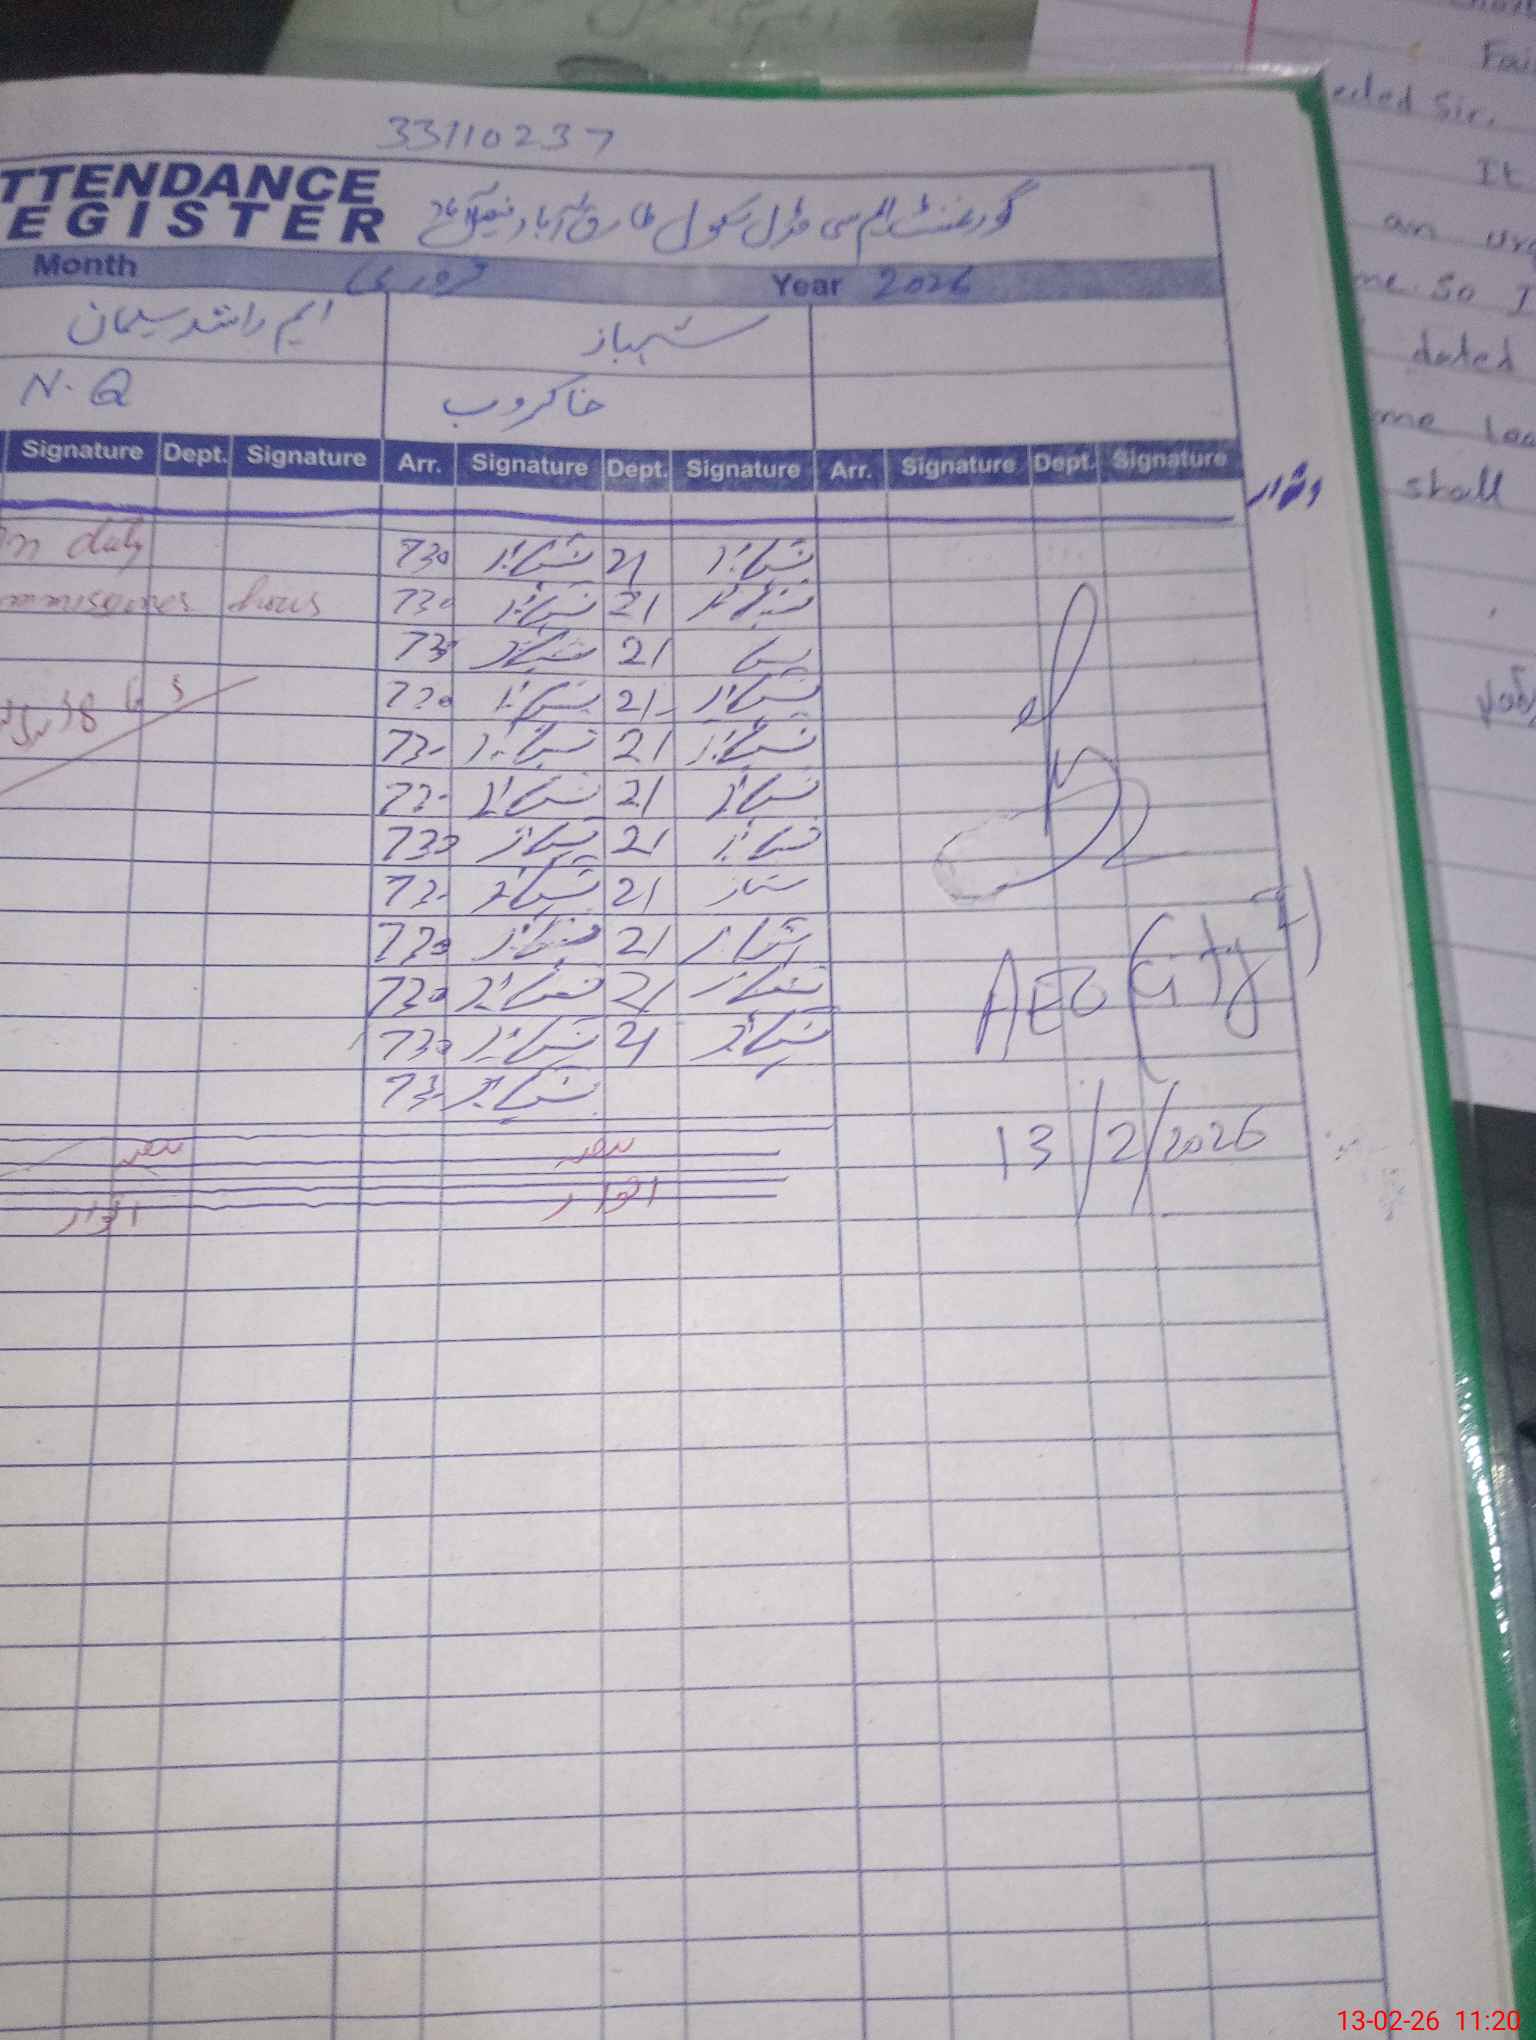 33110237
TTENDANCE
EGISTER
گورنمنٹ ایم سی مڈل سکول طارق آباد فیصل آباد
Month فروری Year 2026
ایم راشد سلیمان شہباز
N.Q خاکروب
Signature Dept. Signature Arr. Signature Dept. Signature Arr. Signature Dept. Signature
اتوار
n duty 730 شہباز 21 شہباز
hours 730 شہباز 21 شہباز
730 شہباز 21
730 شہباز 21 شہباز
730 شہباز 21 شہباز
730 شہباز 21 شہباز
730 شہباز 21 شہباز
730 شہباز 21 شہباز
730 شہباز 21 شہباز
730 شہباز 21 شہباز
730 شہباز 21 شہباز
730 شہباز
AEO (City
13/2/2026
ہفتہ ہفتہ
اتوار اتوار
ected Sir.
It
an
me. So I
dated
me
shall
13-02-26 11:20